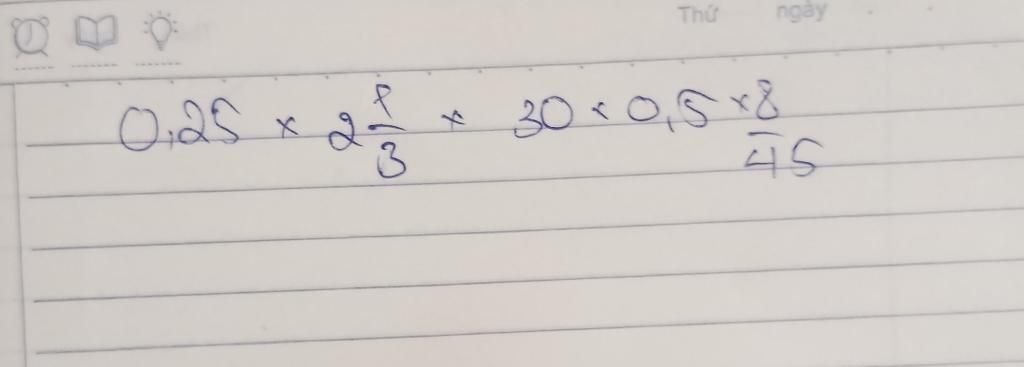 Thứ ngày
0,25 × 2 1/3 × 30 × 0,5 × 8/45